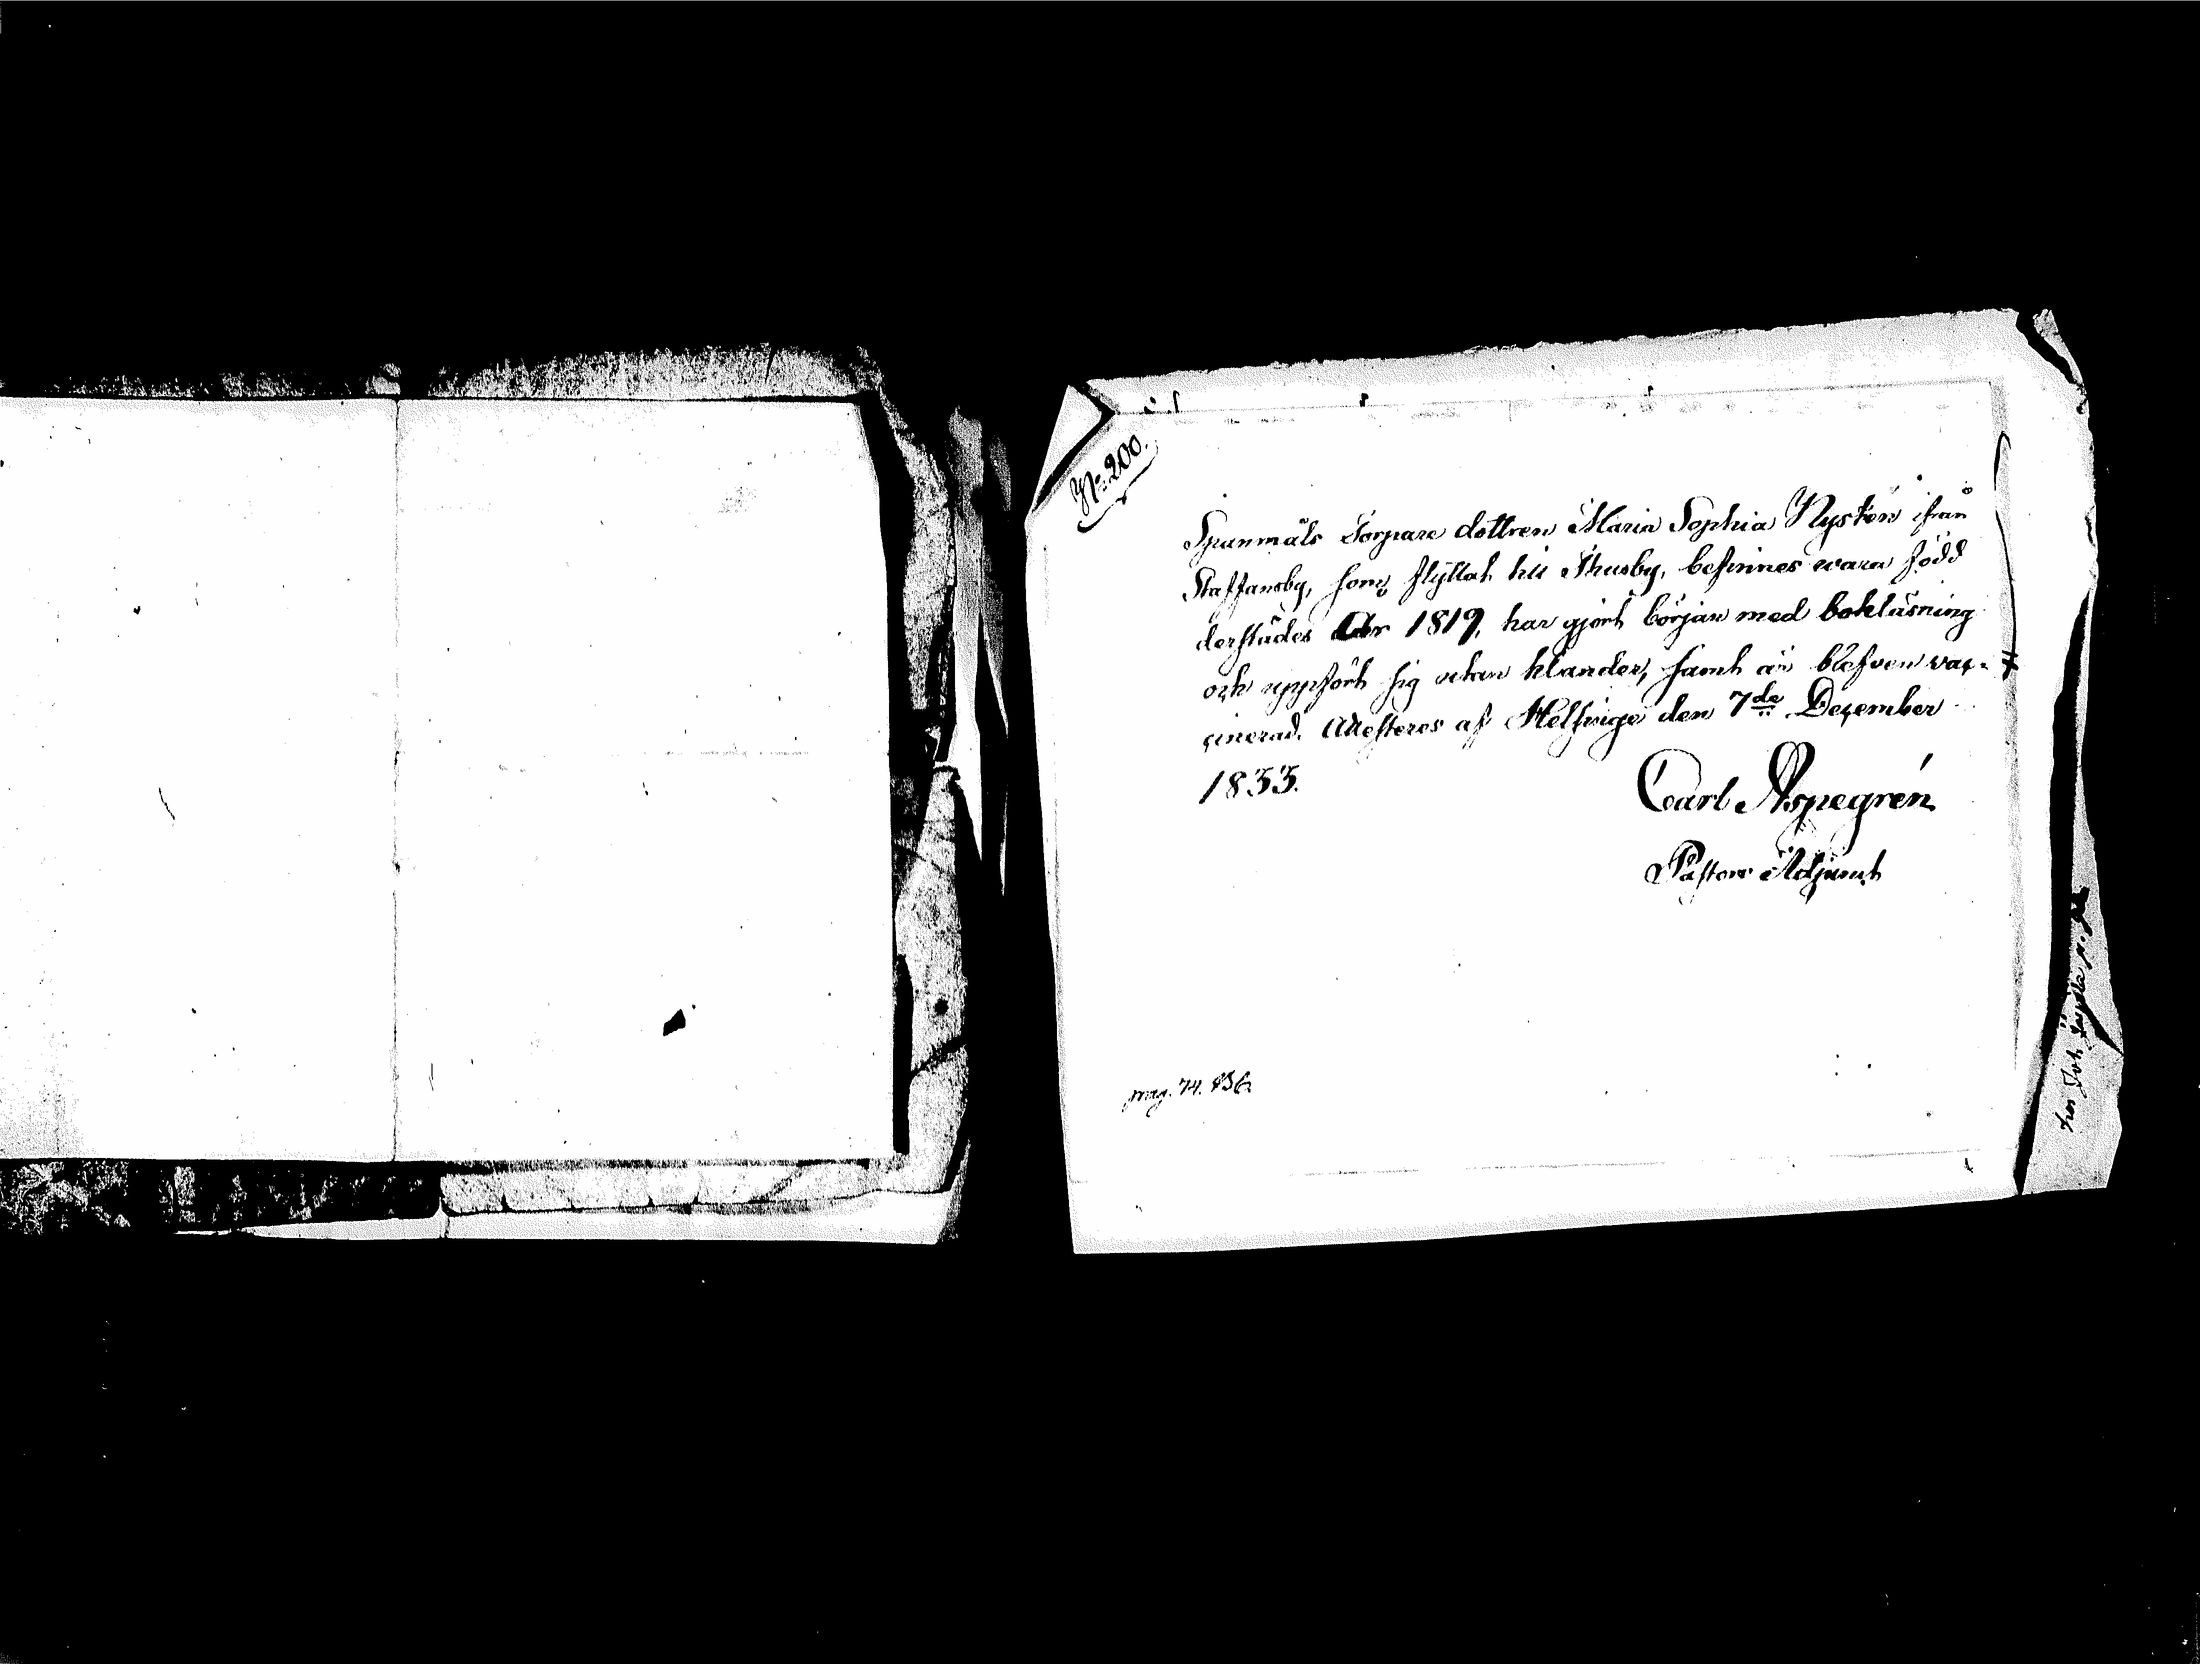 No. 200.
Spanmåls Torpare dottren Maria Sophia Nystén ifrån
Staffansby, som flyttat till Thusby, befinnes wara född
derstädes År 1819, har gjort början med bokläsning
och uppfört sig utan klander, samt är blefven vac-
cinerad. Attesteras af Helsinge den 7de December
1833.
Carl Aspegrén
Pastors Adjunct
pag. 74. 836.